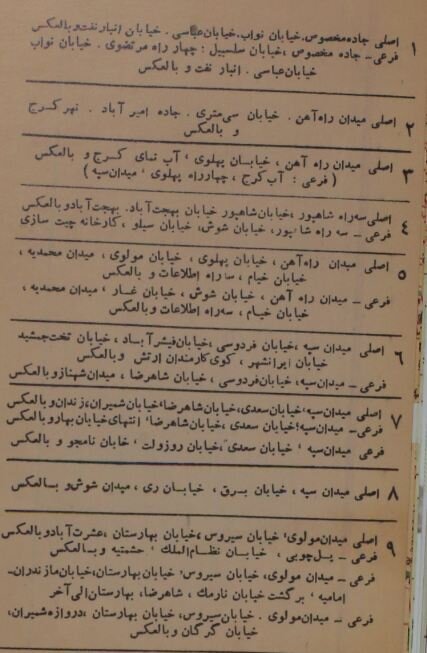 ۱ اصلی جاده مخصوص، خیابان نواب، خیابان عباسی . خیابان انبار نفت و بالعکس
فرعی ــ جاده مخصوص ، خیابان سلسبیل : چهار راه مرتضوی . خیابان نواب
خیابان عباسی . انبار نفت و بالعکس
۲ اصلی میدان راه آهن . خیابان سی متری . جاده امیر آباد . نهر کرج
و بالعکس
۳ اصلی میدان راه آهن ، خیابان پهلوی ، آب نمای کرج و بالعکس
( فرعی : آب کرج ، چهارراه پهلوی ، میدان سپه )
۴ اصلی سه راه شاهپور ، خیابان شاهپور خیابان بهجت آباد. بهجت آباد و بالعکس
فرعی ــ سه راه شاهپور، خیابان شوش، خیابان سیلو ، کارخانه چیت سازی
۵ اصلی میدان راه آهن ، خیابان پهلوی ، خیابان مولوی ، میدان محمدیه ،
خیابان خیام ، سه راه اطلاعات و بالعکس
فرعی ــ میدان راه آهن ، خیابان شوش ، خیابان غار ، میدان محمدیه ،
خیابان خیام ، سه راه اطلاعات و بالعکس
۶ اصلی میدان سپه ، خیابان فردوسی ، خیابان فیشر آباد ، خیابان تخت جمشید
خیابان ایرانشهر ، کوی کارمندان ارتش و بالعکس
فرعی ــ میدان سپه، خیابان فردوسی ، خیابان شاهرضا ، میدان شهناز و بالعکس
۷ اصلی میدان سپه ، خیابان سعدی ، خیابان شاهرضا ، خیابان شمیران ، زندان و بالعکس
فرعی ــ میدان سپه ، خیابان سعدی ، خیابان شاهرضا ، انتهای خیابان بهار و بالعکس
فرعی میدان سپه ، خیابان سعدی ، خیابان روزولت ، خابان نامجو و بالعکس
۸ اصلی میدان سپه ، خیابان برق ، خیابان ری ، میدان شوش و بالعکس
۹ اصلی میدان مولوی ، خیابان سیروس ، خیابان بهارستان ، عشرت آباد و بالعکس
فرعی ــ پل چوبی ، خیابان نظام الملک ، حشمتیه و بالعکس
فرعی ــ میدان مولوی، خیابان سیروس ، خیابان بهارستان ، خیابان مازندران ــ
امامیه ، برگشت خیابان نارمک ، شاهرضا، بهارستان الی آخر
فرعی ــ میدان مولوی . خیابان سیروس، خیابان بهارستان ، دروازه شمیران ،
خیابان گرگان و بالعکس